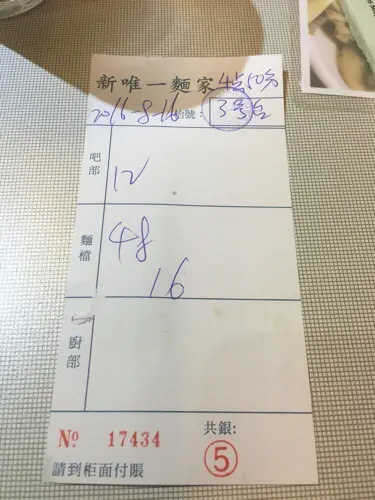 新唯一麵家 4点50分
2016-8-16 枱號： 3号台
吧部 12
麵檔 48
16
廚部
共銀:
Nº 17434 5
請到柜面付賬